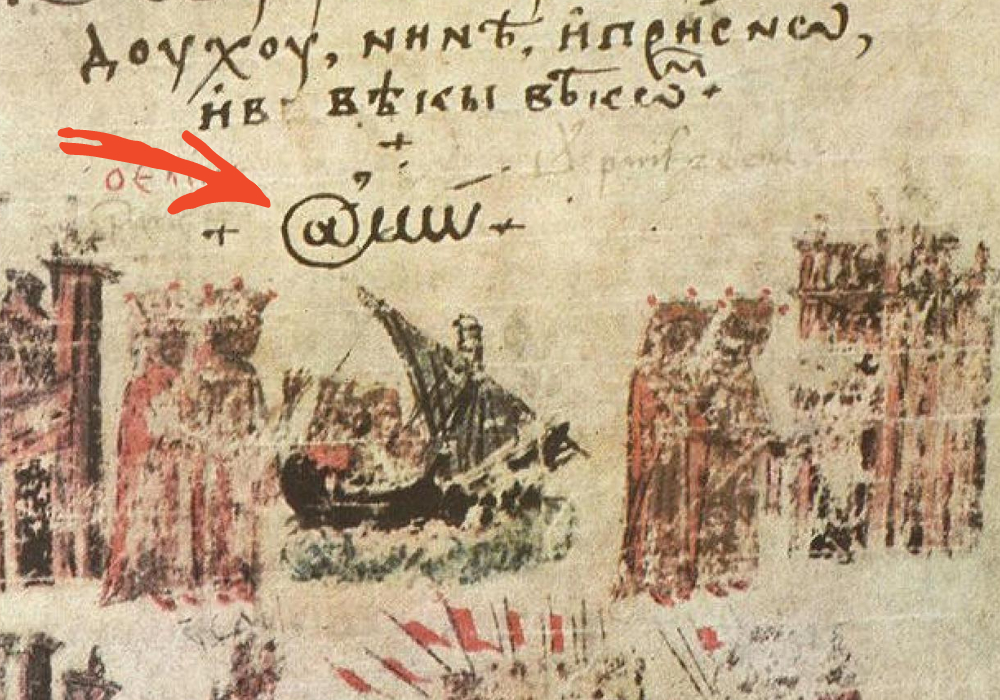 доухоу, нинѣ, и присно,
и в вѣкы вѣкѡⷨ +
+
+ @мин +